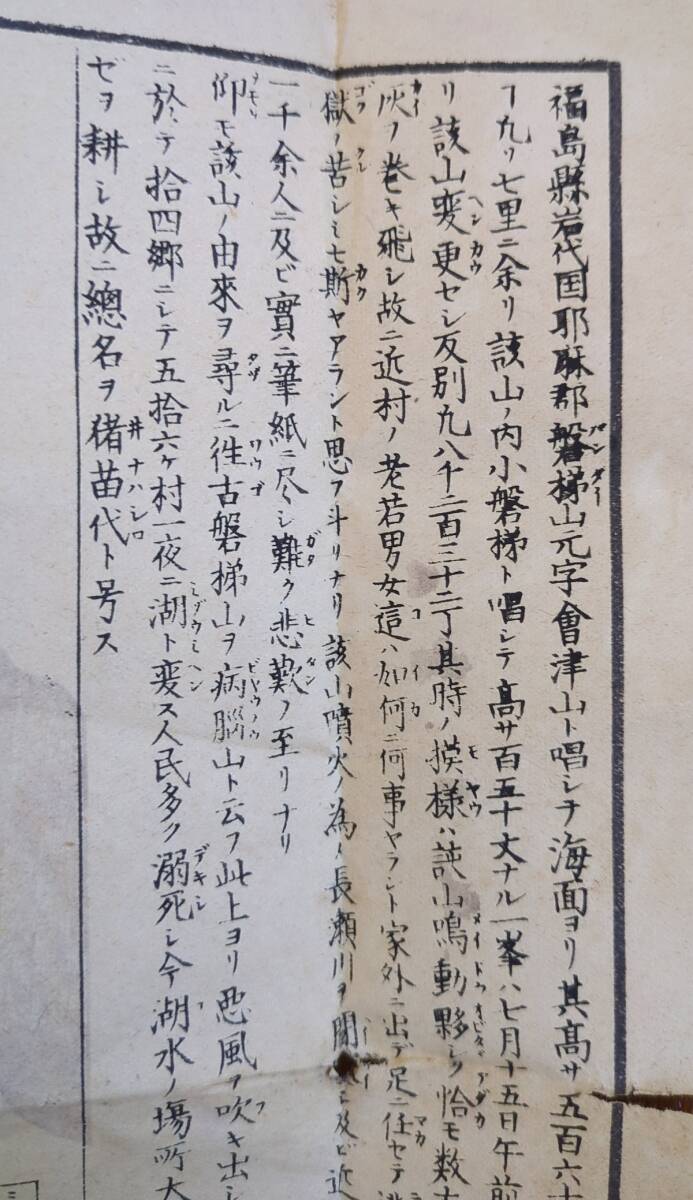 福島縣岩代国耶麻郡磐梯山元字會津山ト唱シテ海面ヨリ其高サ五百六十
ヿ九リ七里ニ余リ該山ノ内小磐梯ト唱シテ高サ百五十丈ナル一峯ハ七月十五日午前
リ該山変更セシ反別九八千二百三十二丁其時ノ摸様ハ該山鳴動夥シク恰モ数
灰ヲ巻キ飛シ故ニ近村ノ老若男女這ハ如何ニ何事ヤラント家外ニ出デ足ニ任セテ
獄ノ苦シミモ斯ヤアラント思フ斗リナリ該山噴火ノ為メ長瀬川ヲ閉ニ及ビ近
一千余人ニ及ビ實ニ筆紙ニ尽シ難ク悲歎ノ至リナリ
仰モ該山ノ由來ヲ尋ルニ徃古磐梯山ヲ病腦山ト云フ此上ヨリ悪風ヲ吹キ出シ
ニ於テ拾四郷ニシテ五拾六ケ村一夜ニ湖ト変ス人民多ク溺死シ今湖水ノ塲所大
ゼヲ耕シ故ニ總名ヲ猪苗代ト号ス